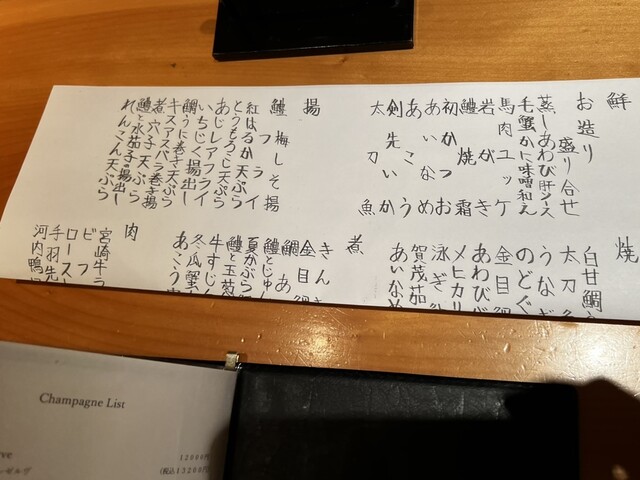 鮮
お造り 盛り合せ
蒸しあわび肝ソース
毛蟹かに味噌和え
馬肉ユッケ
岩がき
鱧 焼霜
初がつお
あいなめ
あこう
剣先いか
太刀魚
揚
鱧梅しそ揚
紅はるか天ぷら
とうもろこし天ぷら
あじレアフライ
いちじく揚出し
鯛うに巻き天ぷら
キスアスパラ巻き揚
煮穴子天ぷら
鱧と水茄子の揚出し
れんこん天ぷら
焼
白甘鯛
太刀魚
うなぎ
のどぐ
金目鯛
あわび
メヒカリ
泳ぎ鮎
賀茂茄
あいなめ
煮
きんき
金目鯛
鯛あ
鱧とじゅん
夏かぶら
鱧と玉葱
牛すじ
冬瓜蟹
あこう
肉
宮崎牛
ビフ
ロースト
手羽先
河内鴨
Champagne List
ve
12000円
(税込13200円